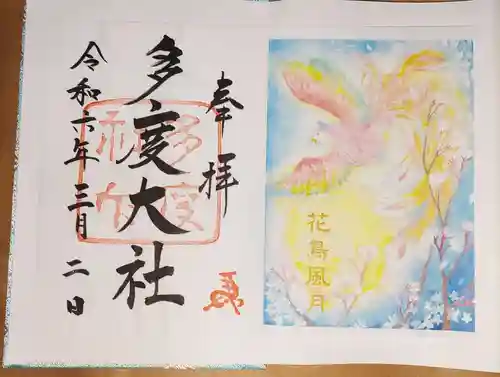 奉拝
多度大社
令和六年三月二日
花鳥風月